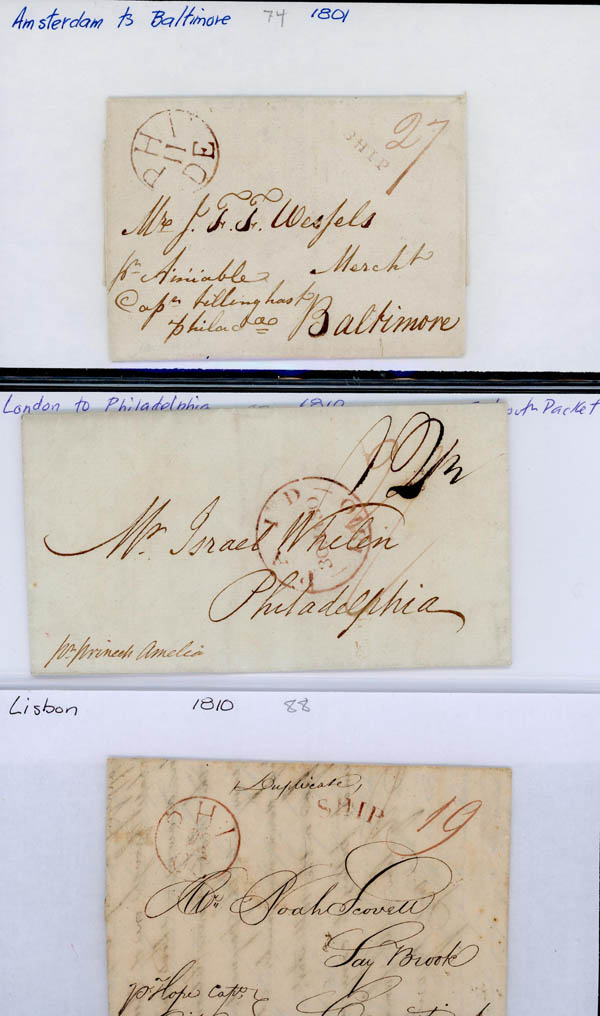 Amsterdam to Baltimore 74 1801
PHI
11
DE
SHIP
27
Mr J. F. F. Wessels
pr Aimiable Mercht
Capn Tillinghast
Philad Baltimore
London to Philadelphia 1810 Packet
Mr Israel Whelen
Philadelphia
pr princess Amelia
Lisbon 1810 88
Duplicate,
SHIP
19
PHI
Mr Noah Scovell
Say Brook
pr Hope Capt